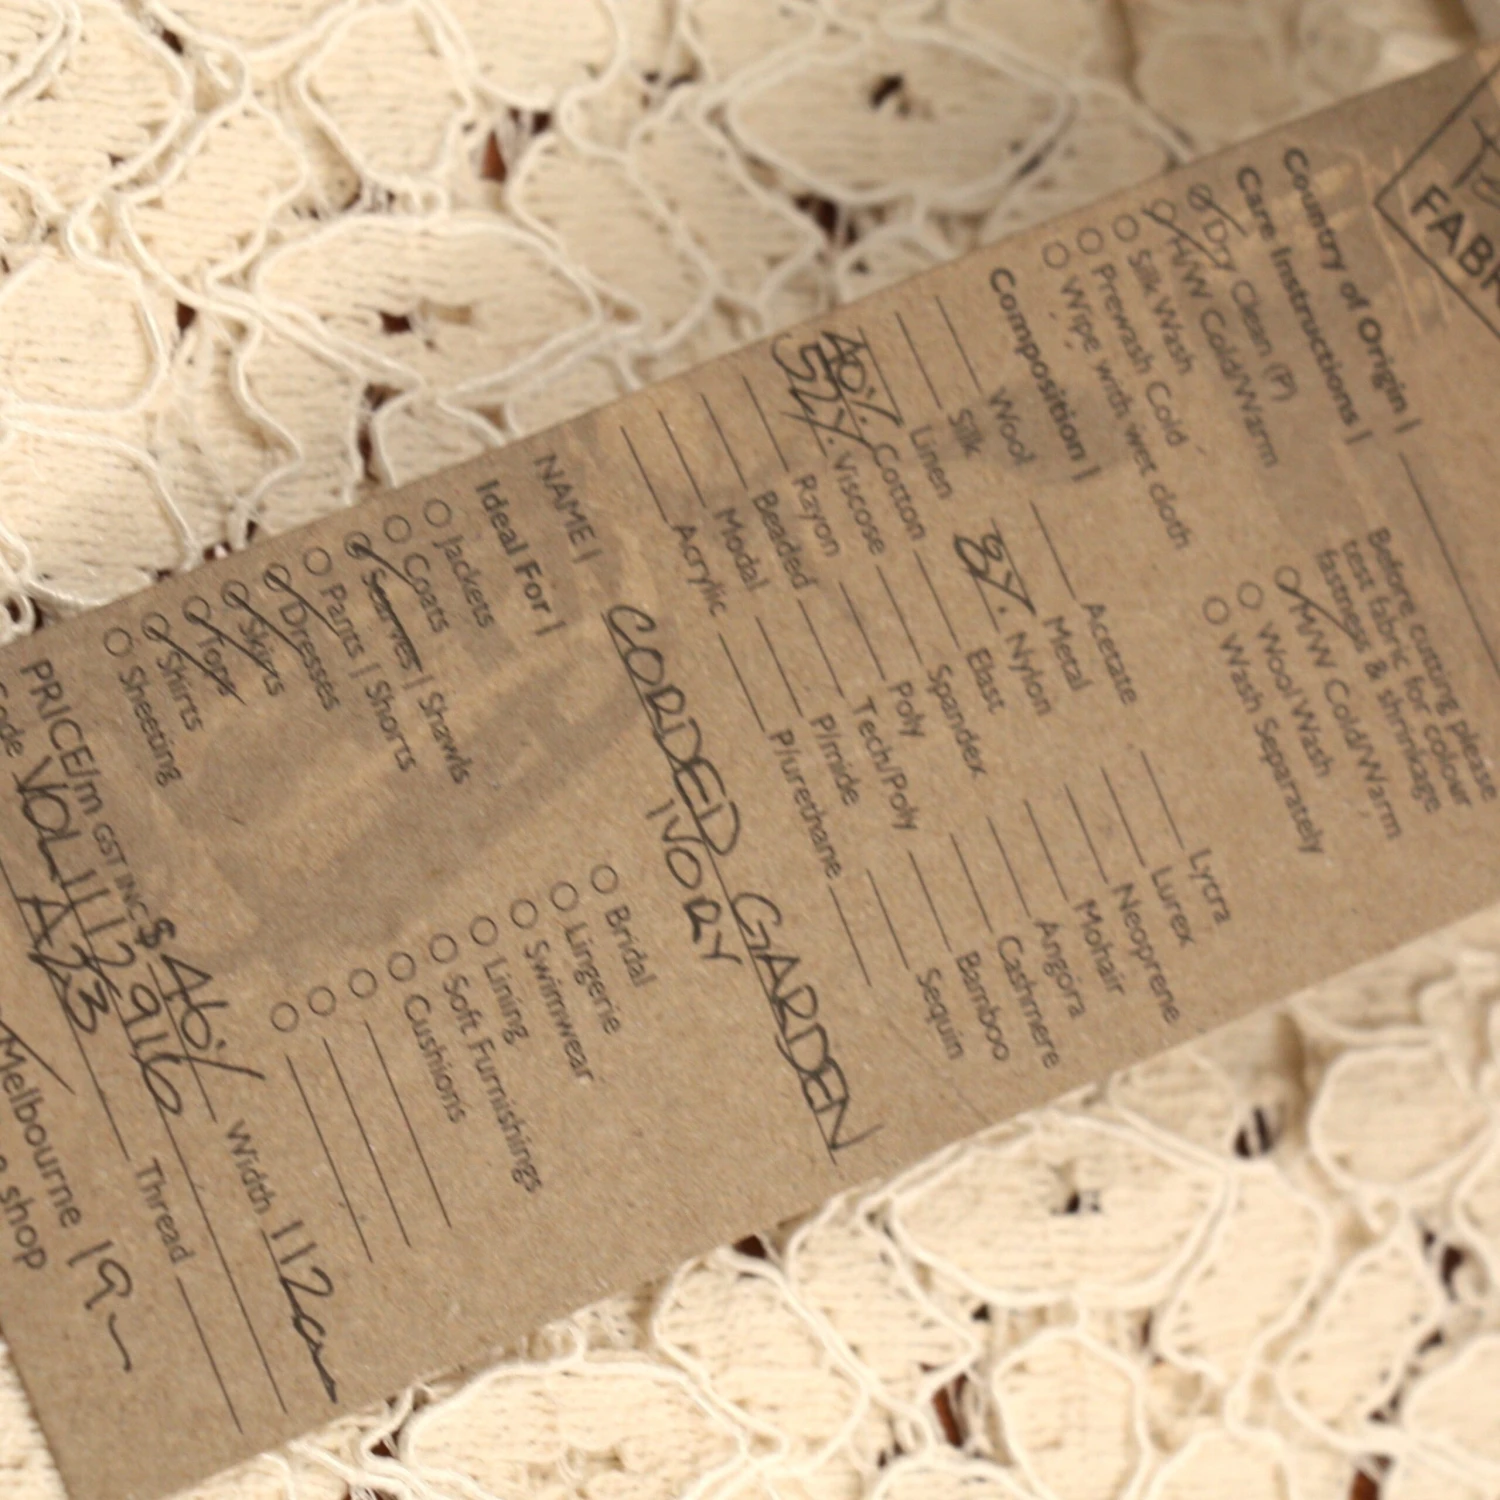 FABR
Country of Origin |
Care Instructions |
Dry Clean (P)
H/W Cold/Warm
Silk Wash
Prewash Cold
Wipe with wet cloth
Before cutting please
test fabric for colour
fastness & shrinkage
H/W Cold/Warm
Wool Wash
Wash Separately
Composition |
Wool
Silk
Linen
40% Cotton
52% Viscose
Rayon
Beaded
Modal
Acrylic
Acetate
Metal
8% Nylon
Elast
Spandex
Poly
Tech/Poly
P/mide
P/urethane
Lycra
Lurex
Neoprene
Mohair
Angora
Cashmere
Bamboo
Sequin
NAME | CORDED GARDEN
IVORY
Ideal For |
Jackets
Coats
Scarves | Shawls
Pants | Shorts
Dresses
Skirts
Tops
Shirts
Sheeting
Bridal
Lingerie
Swimwear
Lining
Soft Furnishings
Cushions
PRICE/m GST INC $ 46./ Width 112cm
Code VOL1112916
A23 Thread
Melbourne 19~
shop